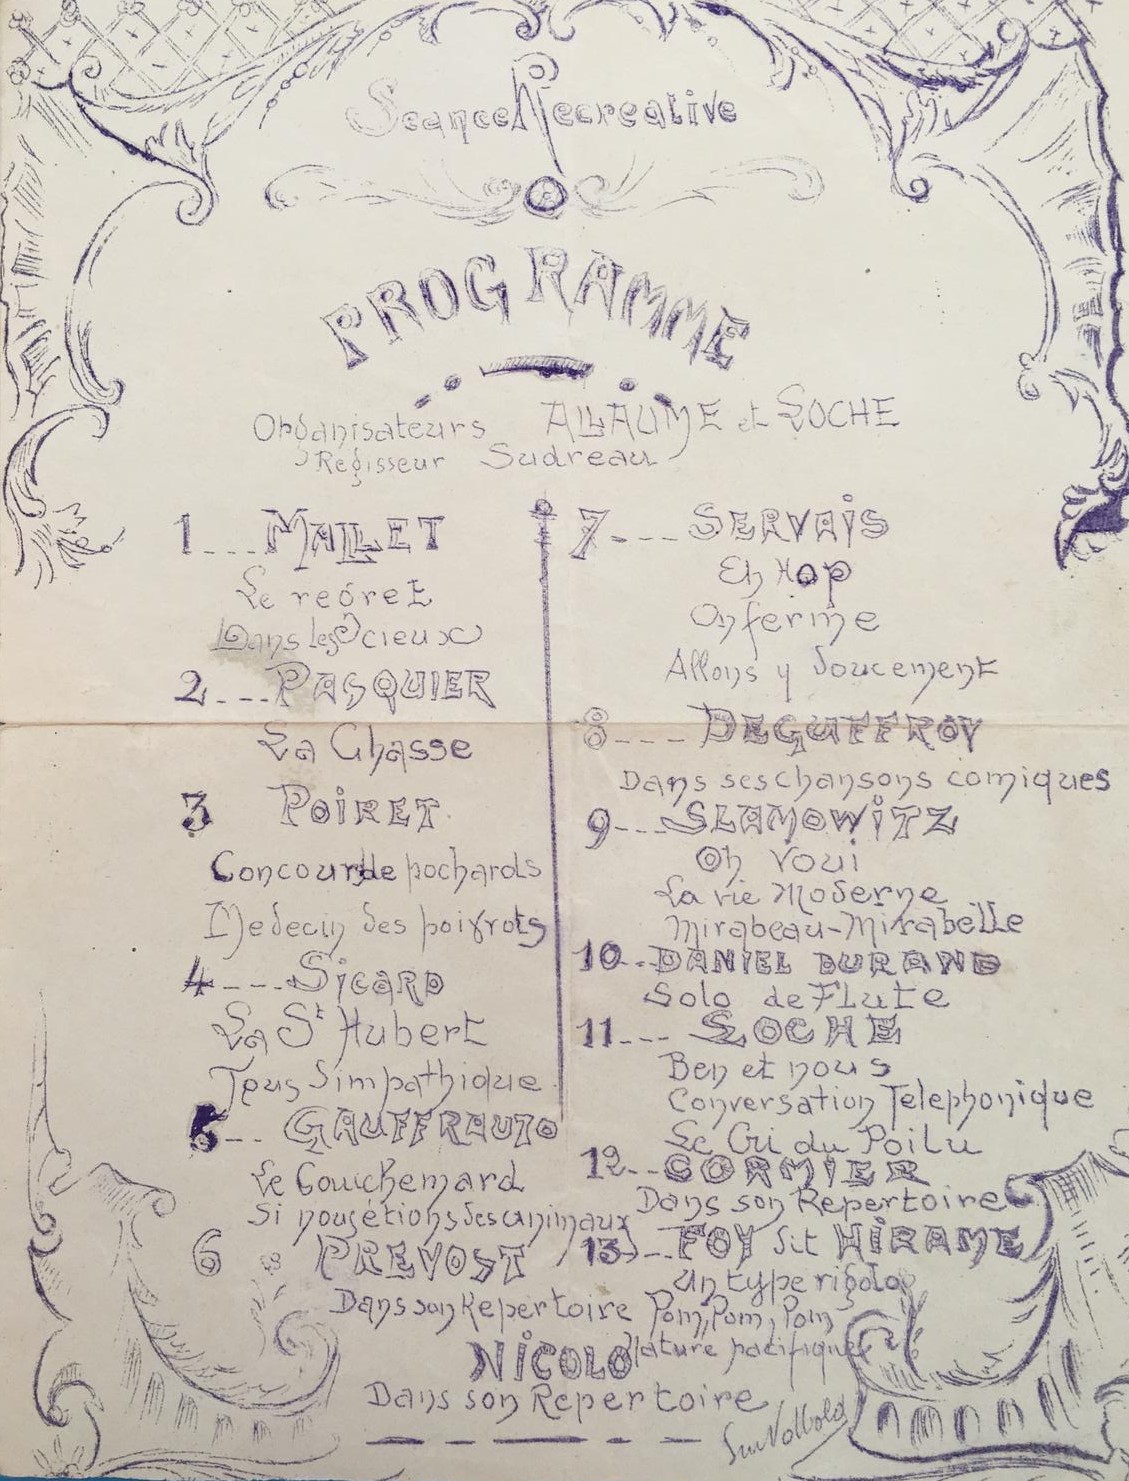 Seance Recreative
PROGRAMME
Organisateurs ALLAUME et LOCHE
Regisseur Sudreau
1 --- MALLET
Le regret
Dans les
2 --- PASQUIER
La Chasse
3 POIRET
Concours de pochards
Medecin des poivrots
4 --- SICARD
La St Hubert
Tous Simpathique
5 -- GAUFFRAUTO
Le Couchemard
Si nous etions des animaux
6 PREVOST
Dans son Repertoire
NICOLO
Dans son Repertoire
7 --- SERVAIS
Eh Hop
On ferme
Allons y doucement
8 --- DEGUFFROY
Dans ses chansons comiques
9 --- SLAMOWITZ
Oh Voui
La vie Moderne
Mirabeau-Mirabelle
10 -- DANIEL DURAND
Solo de Flute
11 --- LOCHE
Ben et nous
Conversation Telephonique
Le Cri du Poilu
12 -- CORMIER
Dans son Repertoire
13 -- FOY dit HIRAME
Un type rigolo
Pom, Pom, Pom
Nature pacifique